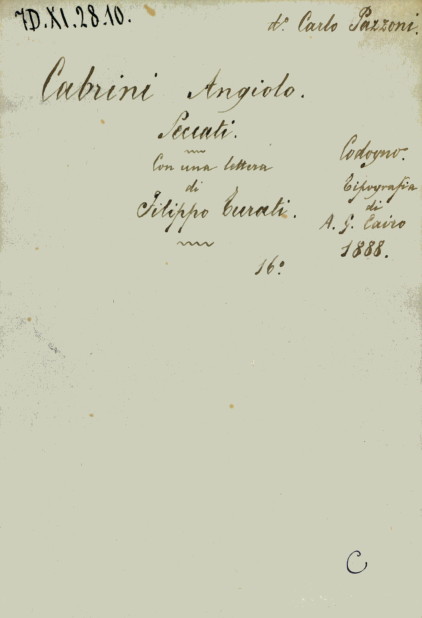 7D.XI.28.10.
d.r Carlo Pazzoni.
Cabrini Angiolo.
Peccati.
Con una lettera
di
Filippo Turati.
Codogno.
Tipografia
di
A. G. Cairo
1888.
16.°
C